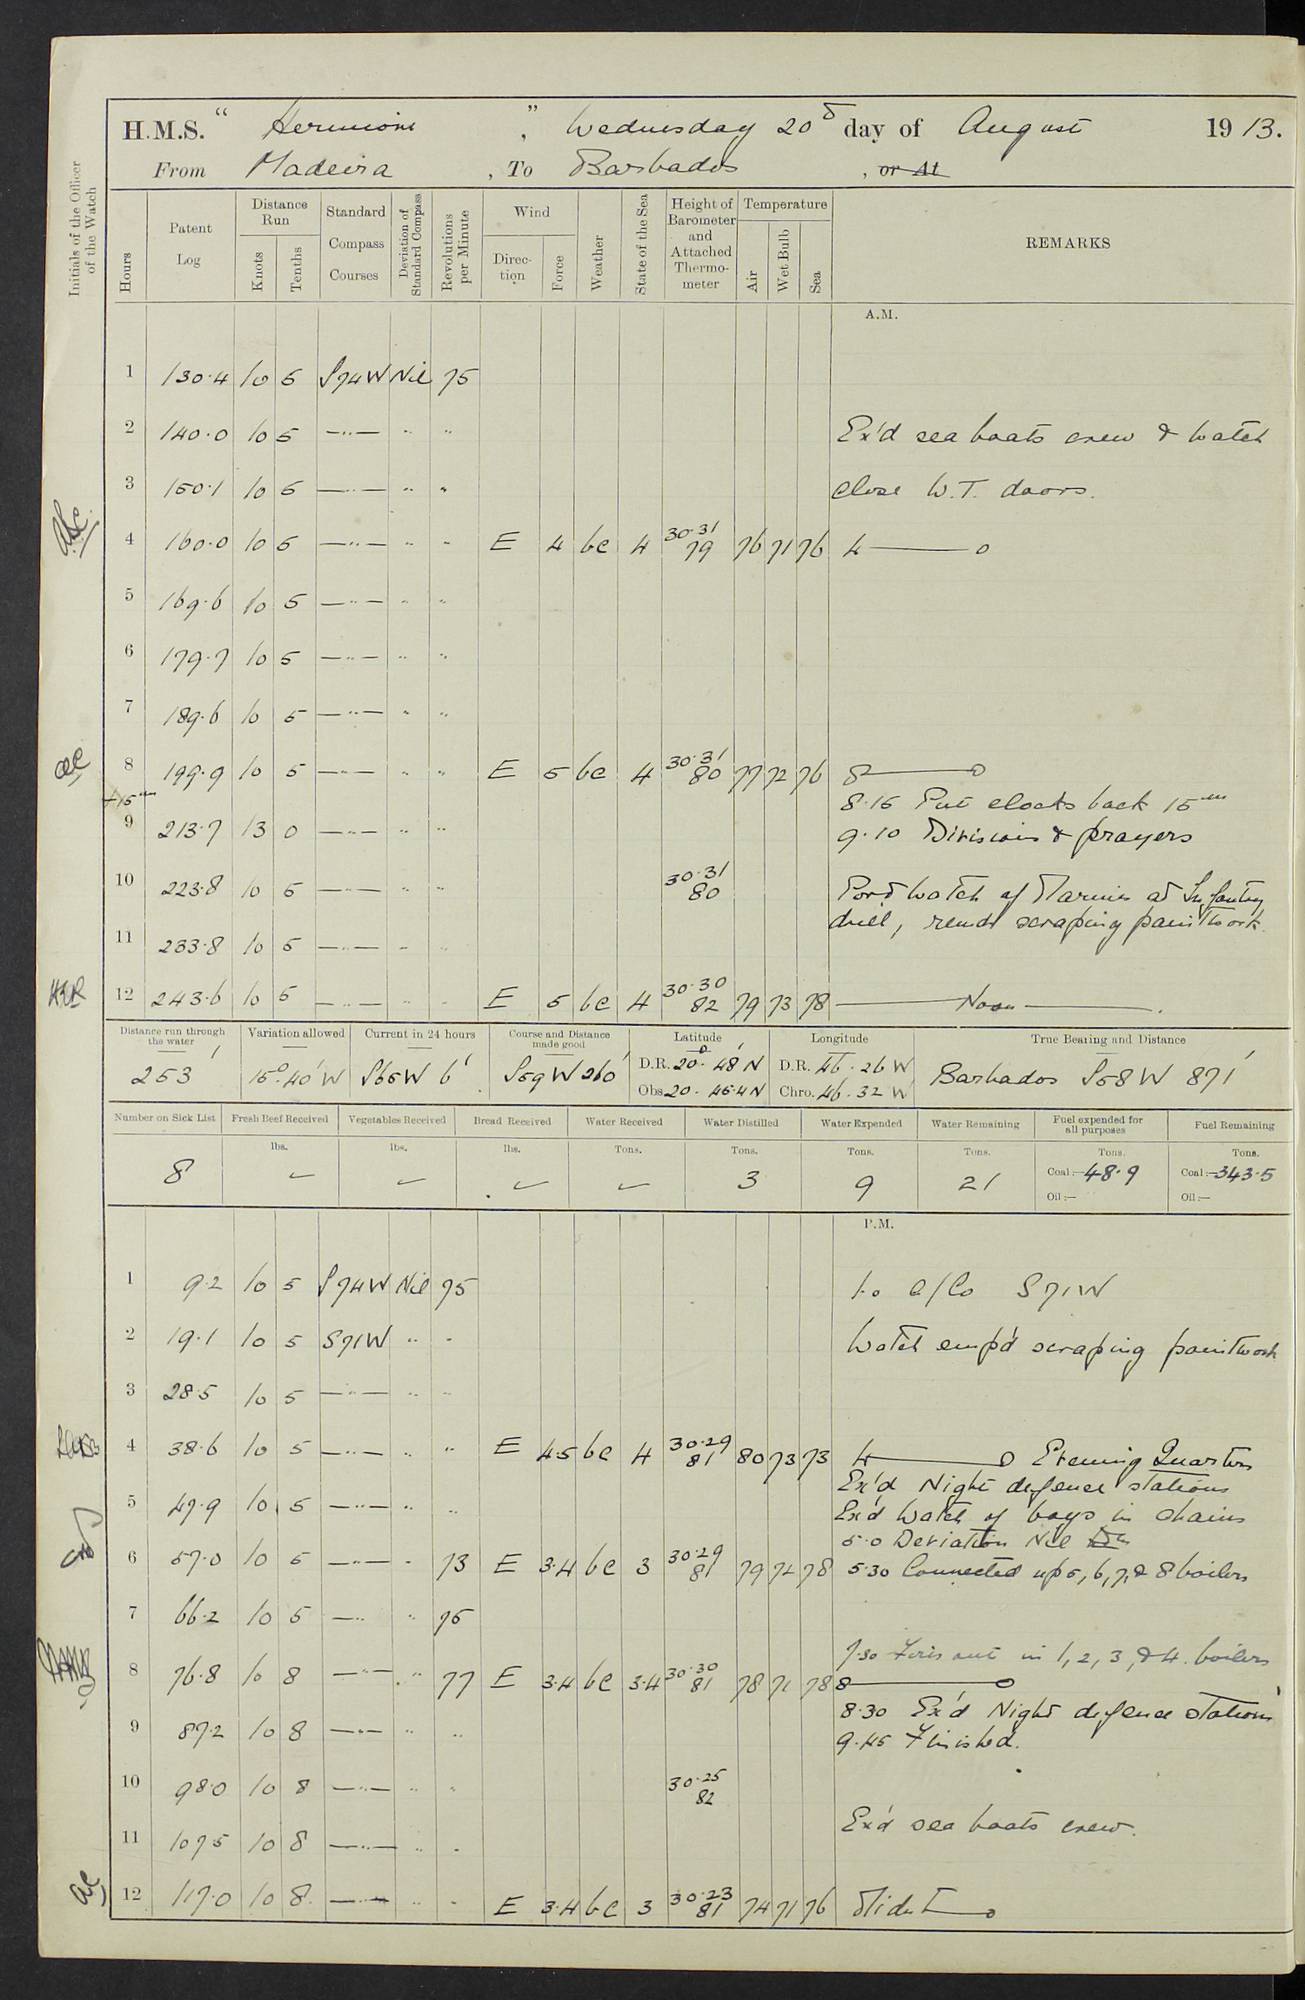 H.M.S. " Hermione ", Wednesday 20th day of August 1913.
From Madeira, To Barbados, or At
Initials of the Officer of the Watch
Hours Patent Log Distance Run Knots Tenths Standard Compass Courses Deviation of Standard Compass Revolutions per Minute Wind Direction Force Weather State of the Sea Height of Barometer and Attached Thermometer Temperature Air Wet Bulb Sea REMARKS
A.M.
1 130.4 10 5 S74W Nil 75
2 140.0 10 5 —"— " " Ex'd sea boats crew & watch
3 150.1 10 5 —"— " " close W.T. doors.
4 160.0 10 5 —"— " " E 4 bc 4 30.31 79 76 71 76 4——o
5 169.6 10 5 —"— " "
6 179.7 10 5 —"— " "
7 189.6 10 5 —"— " "
8 199.9 10 5 —"— " " E 5 bc 4 30.31 80 77 72 76 8——o
+15m 8.15 Put clocks back 15m
9 213.7 13 0 —"— " " 9.10 Divisions & prayers
10 223.8 10 5 —"— " " 30.31 80 Port Watch of Marines at Infantry
drill, remdr scraping paintwork.
11 233.8 10 5 —"— " "
12 243.6 10 5 —"— " " E 5 bc 4 30.30 82 79 73 78 ——Noon——.
Distance run through the water Variation allowed Current in 24 hours Course and Distance made good Latitude Longitude True Bearing and Distance
253' 15°.40'W S65W 6' S59W 260' D.R. 20°.48'N D.R. 46.26 W Barbados S58W 871'
Obs. 20.45.4N Chro. 46.32 W
Number on Sick List Fresh Beef Received Vegetables Received Bread Received Water Received Water Distilled Water Expended Water Remaining Fuel expended for all purposes Fuel Remaining
lbs. lbs. lbs. Tons. Tons. Tons. Tons. Tons. Tons.
8 ✓ ✓ ✓ ✓ 3 9 21 Coal:—48.9 Coal:—343.5
Oil:— Oil:—
P.M.
1 9.2 10 5 S74W Nil 75 1.0 a/Co S71W
2 19.1 10 5 S71W " " Watch emp'd scraping paintwork
3 28.5 10 5 —"— " "
4 38.6 10 5 —"— " " E 4.5 bc 4 30.29 81 80 73 73 4——o Evening Quarters
Ex'd Night defence stations
5 47.9 10 5 —"— " " Ex'd Watch of boys in chains
5.0 Deviation Nil
6 57.0 10 5 —"— " 73 E 3.4 bc 3 30.29 81 79 72 78 5.30 Connected up 5, 6, 7, & 8 boilers
7 66.2 10 5 —" " 75
7.30 Fires out in 1, 2, 3, & 4. boilers
8 76.8 10 8 —"— " 77 E 3.4 bc 3.4 30.30 81 78 71 78 8——o
8.30 Ex'd Night defence stations
9 87.2 10 8 —"— " " 9.45 Finished.
10 98.0 10 8 —"— " " 30.25 82
Ex'd sea boats crew.
11 107.5 10 8 —"— " "
12 117.0 10 8 —"— " " E 3.4 bc 3 30.23 81 74 71 76 Midnt——o